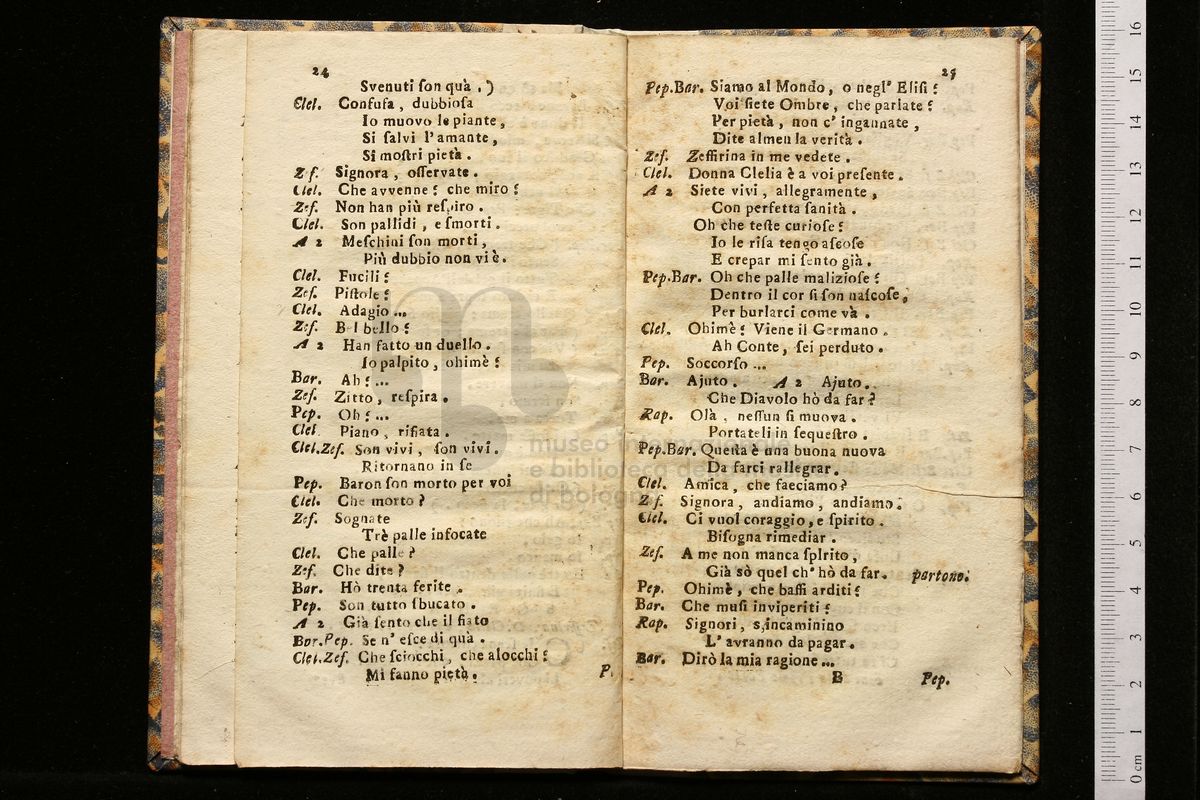 24
Svenuti ſon quà.)
Clel. Confuſa, dubbioſa
Io muovo le piante,
Si ſalvi l'amante,
Si moſtri pietà.
Zef. Signora, oſſervate.
Clel. Che avvenne! che miro!
Zef. Non han più reſpiro.
Clel. Son pallidi, e ſmorti.
A 2 Meſchini ſon morti,
Più dubbio non vi è.
Clel. Fucili!
Zef. Piſtole!
Clel. Adagio...
Zef. Bel bello!
A 2 Han fatto un duello.
Io palpito, ohimè!
Bar. Ah!...
Zef. Zitto, reſpira.
Pep. Oh!...
Clel. Piano, rifiata.
Clel.Zef. Son vivi, ſon vivi.
Ritornano in ſe
Pep. Baron ſon morto per voi
Clel. Che morto?
Zef. Sognate
Trè palle infocate
Clel. Che palle?
Zef. Che dite?
Bar. Hò trenta ferite.
Pep. Son tutto ſbucato.
A 2 Già ſento che il fiato
Bar.Pep. Se n' eſce di quà.
Clel.Zef. Che ſciocchi, che alocchi!
Mi fanno pietà.
P.
25
Pep.Bar. Siamo al Mondo, o negl' Eliſi!
Voi ſiete Ombre, che parlate!
Per pietà, non c' ingannate,
Dite almen la verità.
Zef. Zeffirina in me vedete.
Clel. Donna Clelia è a voi preſente.
A 2 Siete vivi, allegramente,
Con perfetta ſanità.
Oh che teſte curioſe!
Io le riſa tengo aſcoſe
E crepar mi ſento già.
Pep.Bar. Oh che palle malizioſe!
Dentro il cor ſi ſon naſcoſe,
Per burlarci come và.
Clel. Ohimè! Viene il Germano.
Ah Conte, ſei perduto.
Pep. Soccorſo...
Bar. Ajuto. A 2 Ajuto.
Che Diavolo hò da far?
Rap. Olà, neſſun ſi muova.
Portateli in ſequeſtro.
Pep.Bar. Queſta è una buona nuova
Da farci rallegrar.
Clel. Amica, che facciamo?
Zef. Signora, andiamo, andiamo.
Clel. Ci vuol coraggio, e ſpirito.
Biſogna rimediar.
Zef. A me non manca ſpIrito.
Già sò quel ch' hò da far. partono.
Pep. Ohimè, che baffi arditi!
Bar. Che muſi inviperiti!
Rap. Signori, s,incaminino
L' avranno da pagar.
Bar. Dirò la mia ragione...
B Pep.
museo internazionale
e biblioteca della
di bologna
16
15
14
13
12
11
10
9
8
7
6
5
4
3
2
1
0 cm